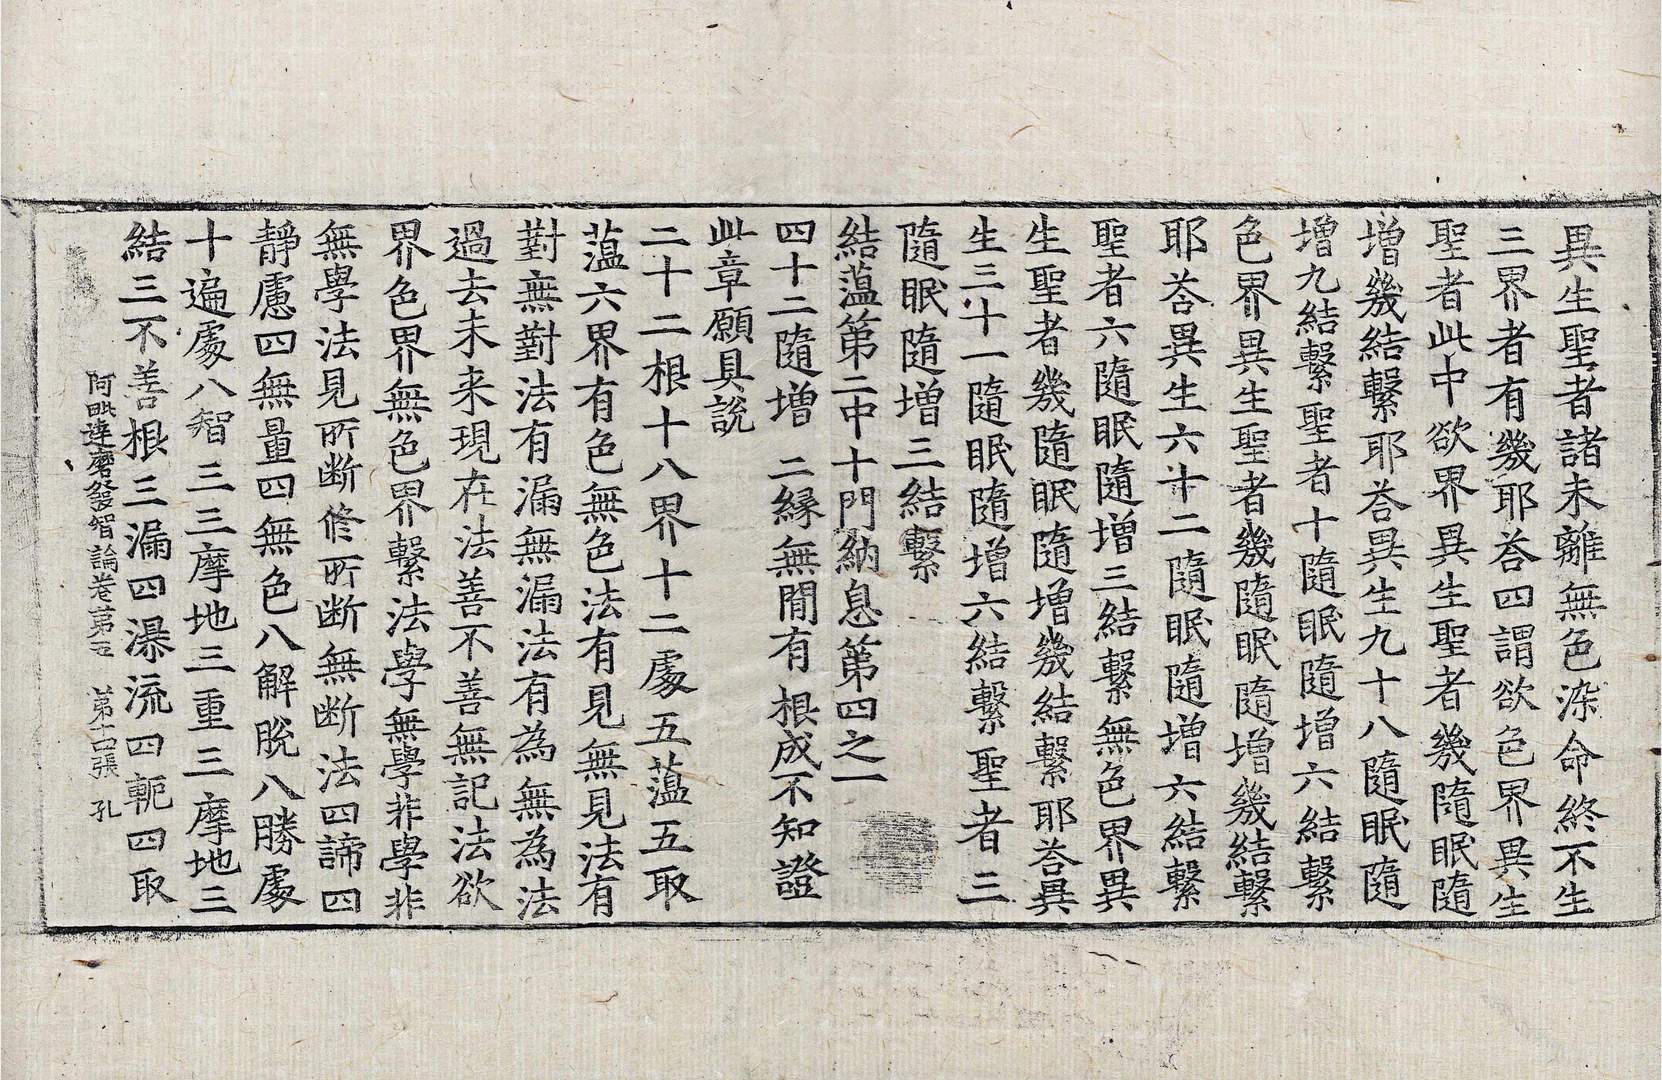 異生聖者諸未離無色染命終不生
三界者有幾耶荅四謂欲色界異生
聖者此中欲界異生聖者幾隨眠隨
増幾結繫耶荅異生九十八隨眠隨
増九結繫聖者十隨眠隨増六結繫
色界異生聖者幾隨眠隨増幾結繫
耶荅異生六十二隨眠隨増六結繫
聖者六隨眠隨増三結繫無色界異
生聖者幾隨眠隨増幾結繫耶荅異
生三十一隨眠隨増六結繫聖者三
隨眠隨増三結繫
結蕰第二中十門納息第四之一
四十二隨増 二緣無閒有 根成不知證
此章願具說
二十二根十八界十二處五蕰五取
蕰六界有色無色法有見無見法有
對無對法有漏無漏法有為無為法
過去未来現在法善不善無記法欲
界色界無色界繫法學無學非學非
無學法見所断修所断無断法四諦四
靜慮四無量四無色八解脫八勝處
十遍處八智三三摩地三重三摩地三
結三不善根三漏四瀑流四軛四取
阿毗達磨發智論卷第五 第十四張 孔